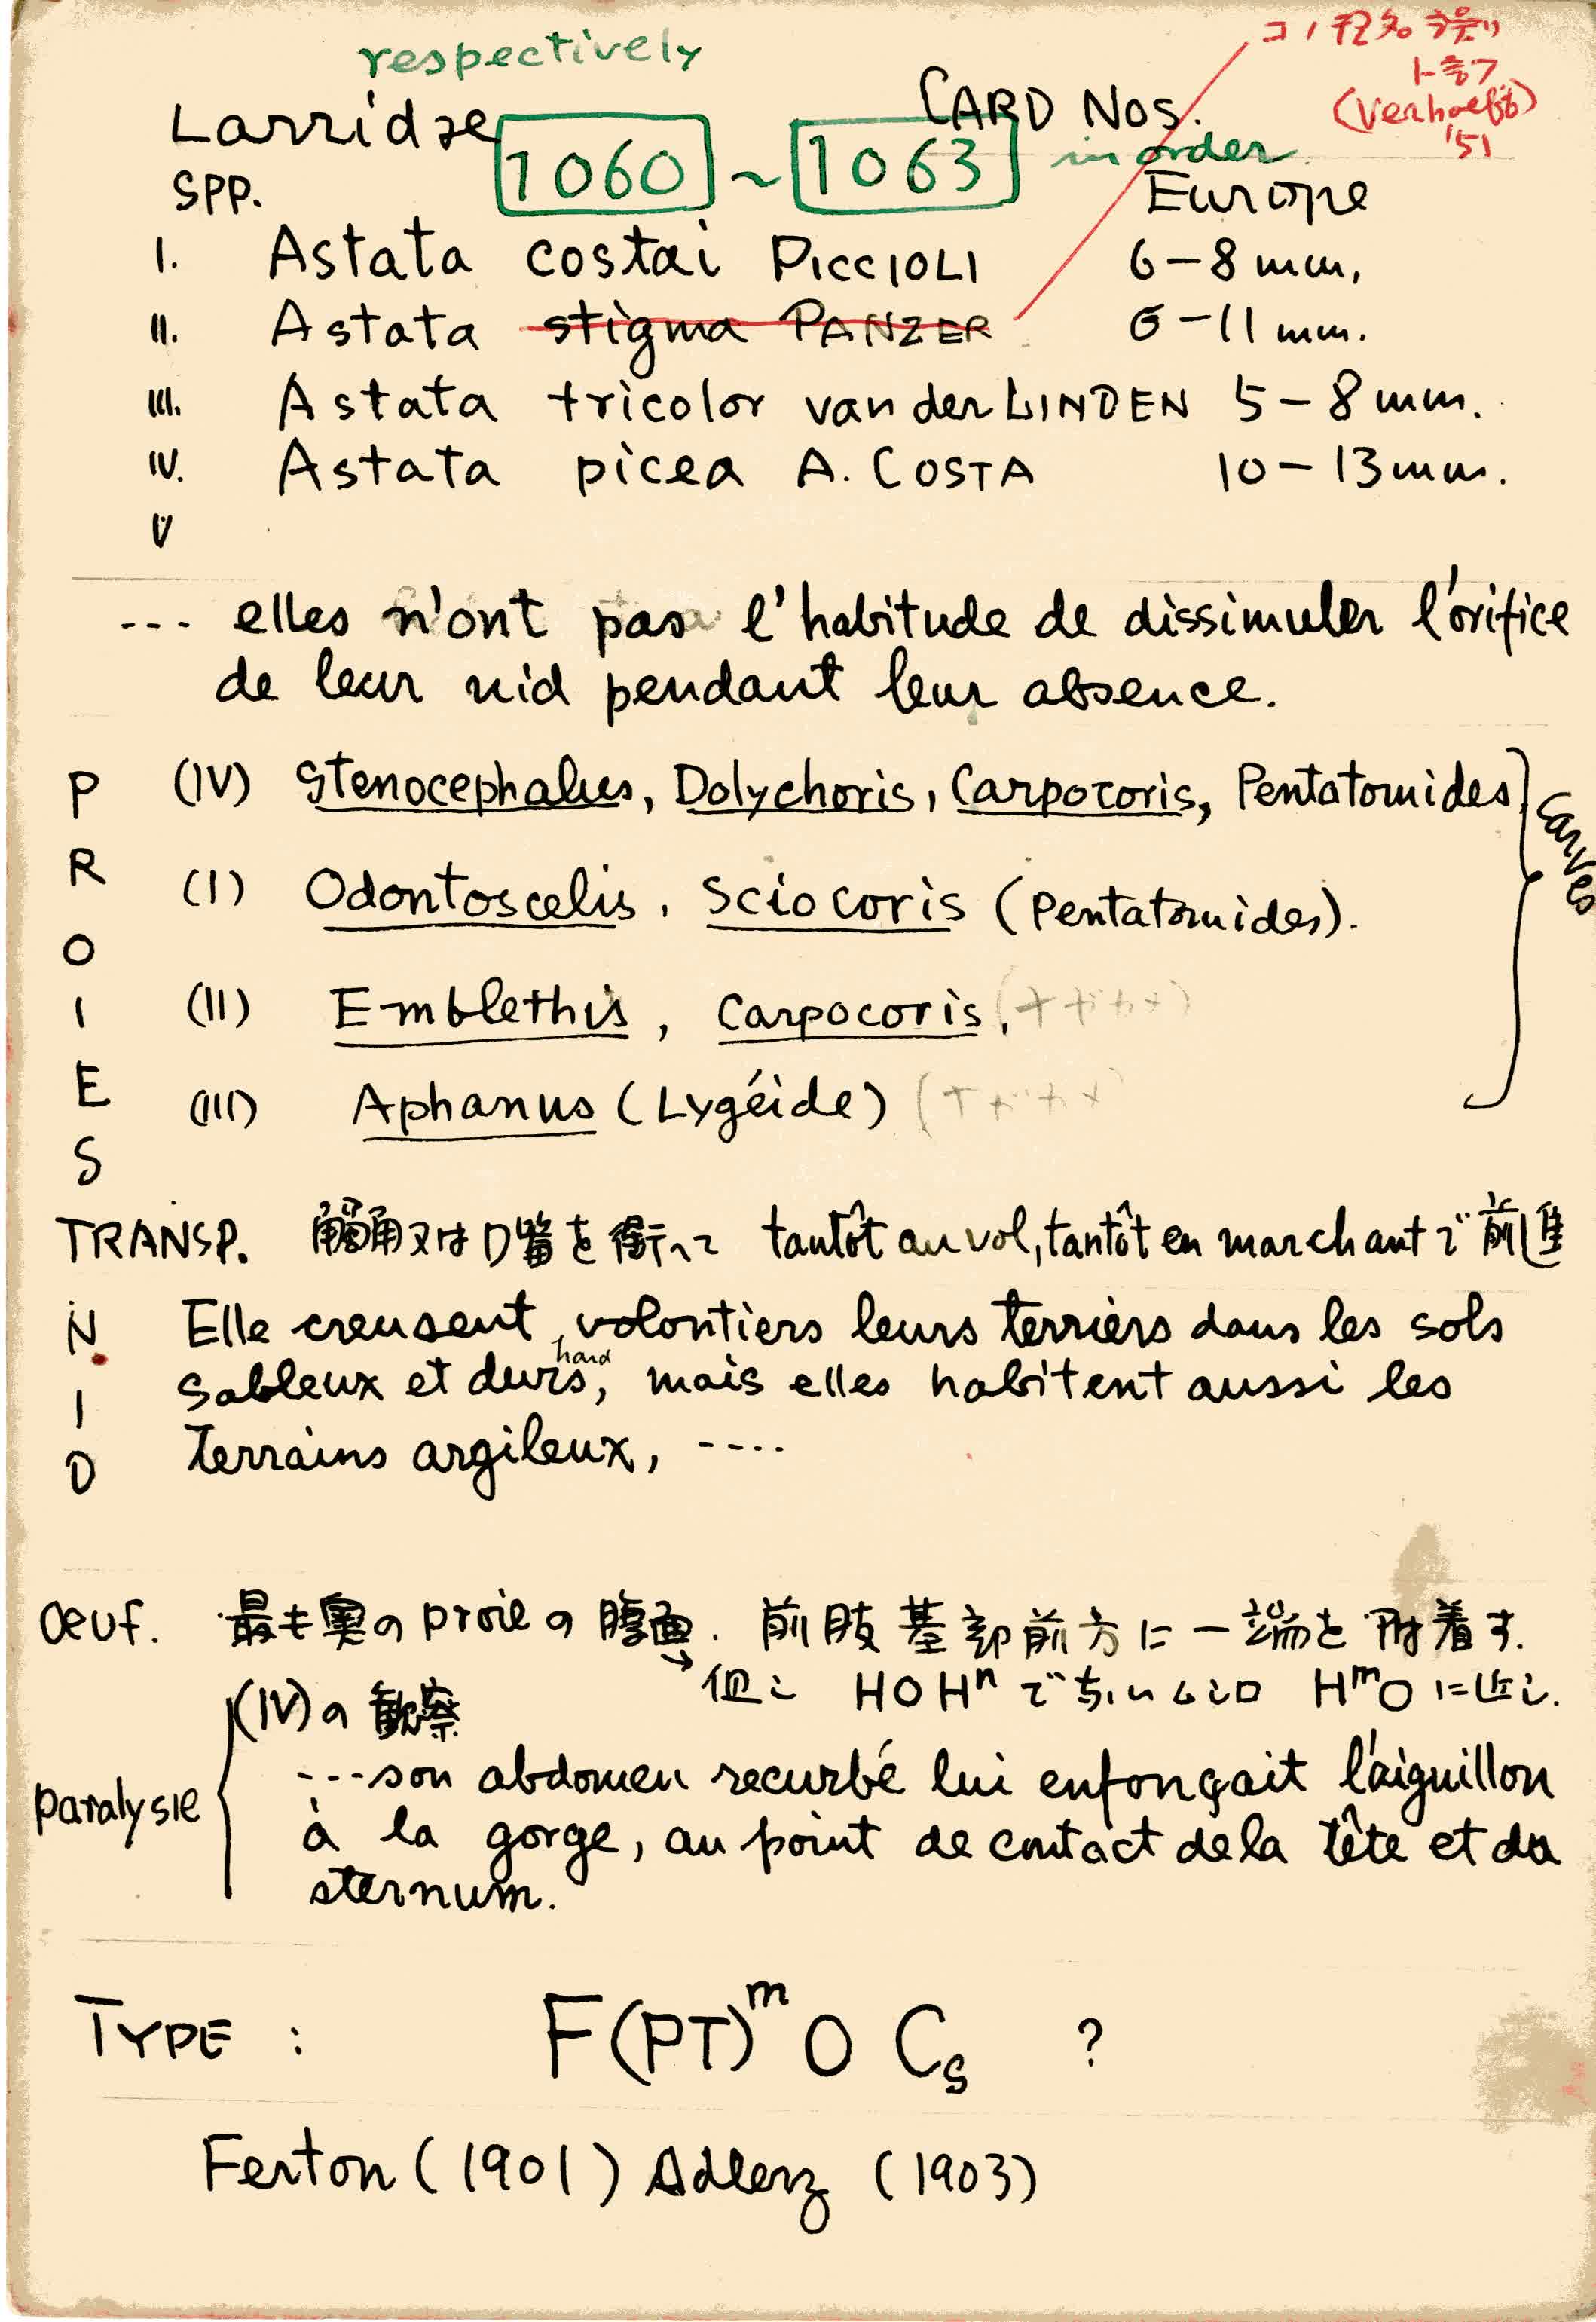 respectively
コノ種名誤リ
ト言フ
(Verhoeff)
'51
Larridae CARD Nos.
1060 ~ 1063 in order
SPP. Europe
I. Astata costai PICCIOLI 6-8 mm.
II. Astata stigma PANZER 6-11 mm.
III. Astata tricolor van der LINDEN 5-8 mm.
IV. Astata picea A. COSTA 10-13 mm.
V
--- elles n'ont pas l'habitude de dissimuler l'orifice
de leur nid pendant leur absence.
PROIES
(IV) Stenocephalus, Dolychoris, Carpocoris, Pentatomides
(I) Odontoscelis, Sciocoris (Pentatomides).
(II) Emblethis, Carpocoris.
(III) Aphanus (Lygéide)
Larves
TRANSP. 觸角又は口器を銜へて tantôt au vol, tantôt en marchant で前進
NID
Elle creusent volontiers leurs terriers dans les sols
sableux et durs, mais elles habitent aussi les
hard
terrains argileux, ----
Oeuf. 最も奥の proie の腹面. 前肢基部前方に一端を附着す.
→ 但し HOHⁿ で HᵐO に近し.
paralysie
(IV)の観察
---son abdomen recurbé lui enfonçait l'aiguillon
à la gorge, au point de contact de la tête et du
sternum.
TYPE : F(PT)ᵐ O Cs ?
Ferton (1901) Adlerz (1903)